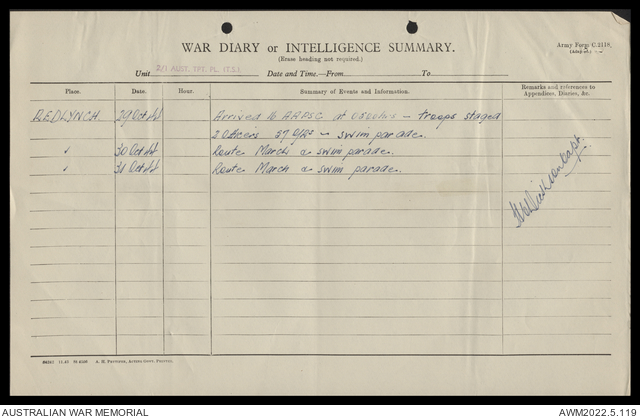 WAR DIARY or INTELLIGENCE SUMMARY.
(Erase heading not required.)
Army Form C.2118.
Unit 2/1 AUST. TPT. PL. (T.I.) Date and Time—From To
Place. Date. Hour. Summary of Events and Information. Remarks and references to Appendices, Diaries, &c.
REDLYNCH 29 Oct 44 Arrived 16 AAPSC at 0500hrs - troops staged
2 Officers 37 O/Rs - swim parade.
" 30 Oct 44 Route March & swim parade.
" 31 Oct 44 Route March & swim parade.
11.43
AUSTRALIAN WAR MEMORIAL
AWM2022.5.119